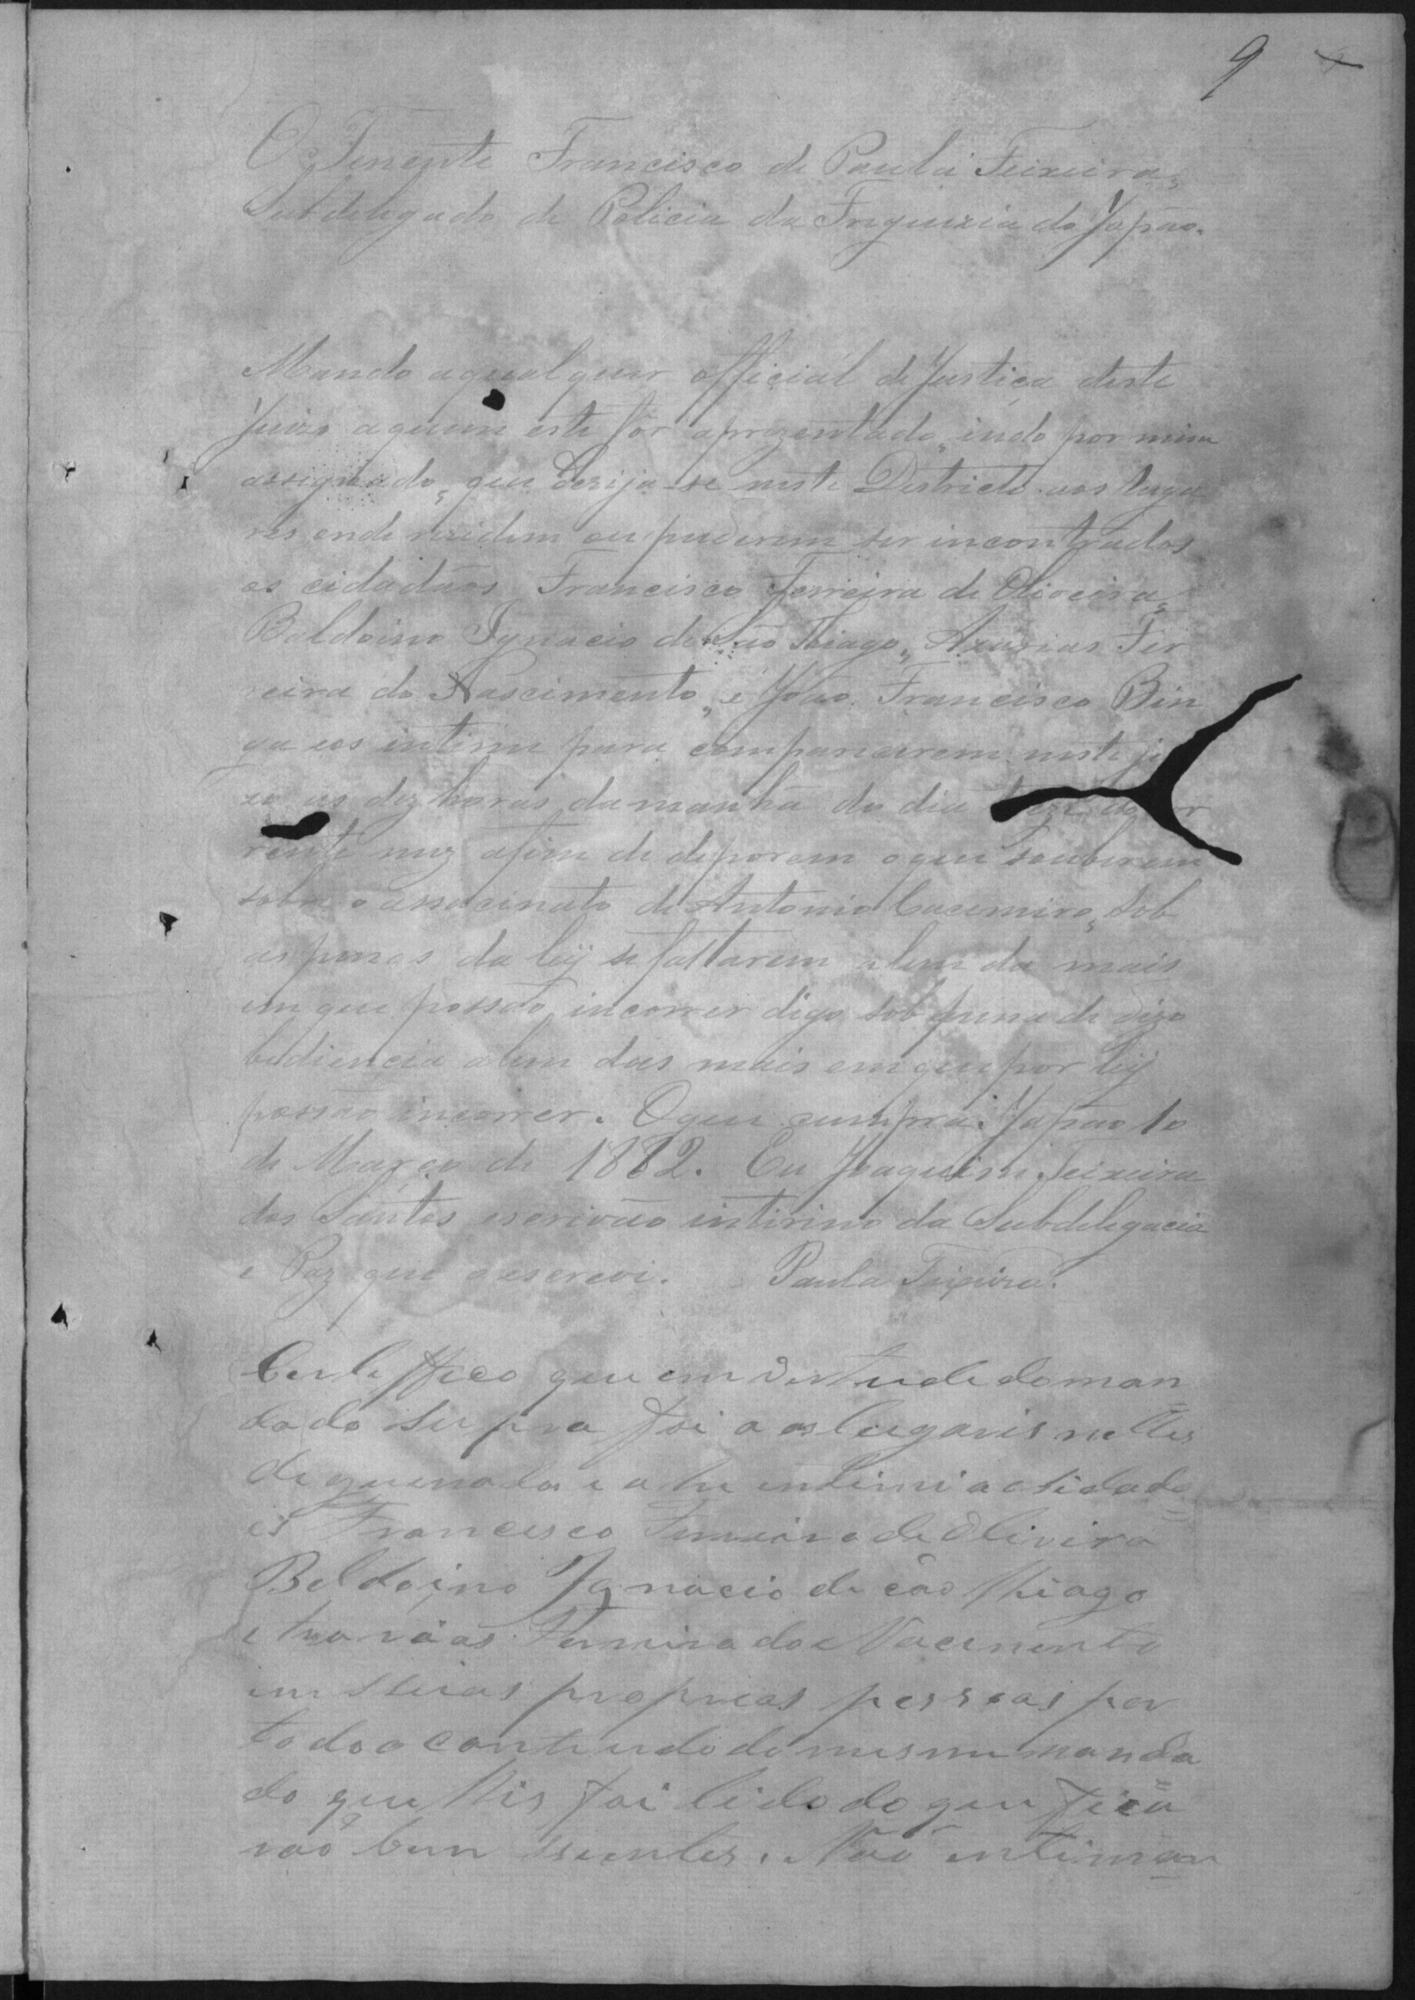 9
O Tenente Francisco de Paula Teixeira,
Subdelegado de Policia da Freguezia do Japão.
Mando aqualquer official de Justiça deste
Juizo aquem este fôr aprezentado, indo por mim
assignado, que derija-se neste Districto aos luga
res onde rezidem ou puderem ser incontrados
os cidadãos Francisco Ferreira de Oliveira,
Baldoino Ignacio de São Thiago, Azarias Fer
reira do Nascimento, e João Francisco Bin
ga e os intime para comparecerem neste jui
zo as dez horas da manhã do dia do cor
rente mez afim de deporem oque souberem
sobre o assacinato de Antonio Casemiro, sob
as penas da ley se faltarem alem da mais
em que possão incorrer digo sob pena de dezo
bediencia alem das mais em que por ley
possão incorrer. Oque cumpra. Japão 10
de Março de 1882. Eu Joaquim Teixeira
dos Santos escrivão intirino da Subdelegacia
e Paz que o escrevi. Paula Teixeira.
Certeffico que em vertude do man
dado supra foi a os lugaris nelles
de e ahi intimi a osidadõ
is Francisco Ferreira de Oliveira
Baldoino Ignacio de são Thiago
Ferreira do Nacimento
em suas proprias pessoas por
todo o contiudo do mesmo manda
do que lhis foi lido do que fica
rão bem sientes. Não intiman